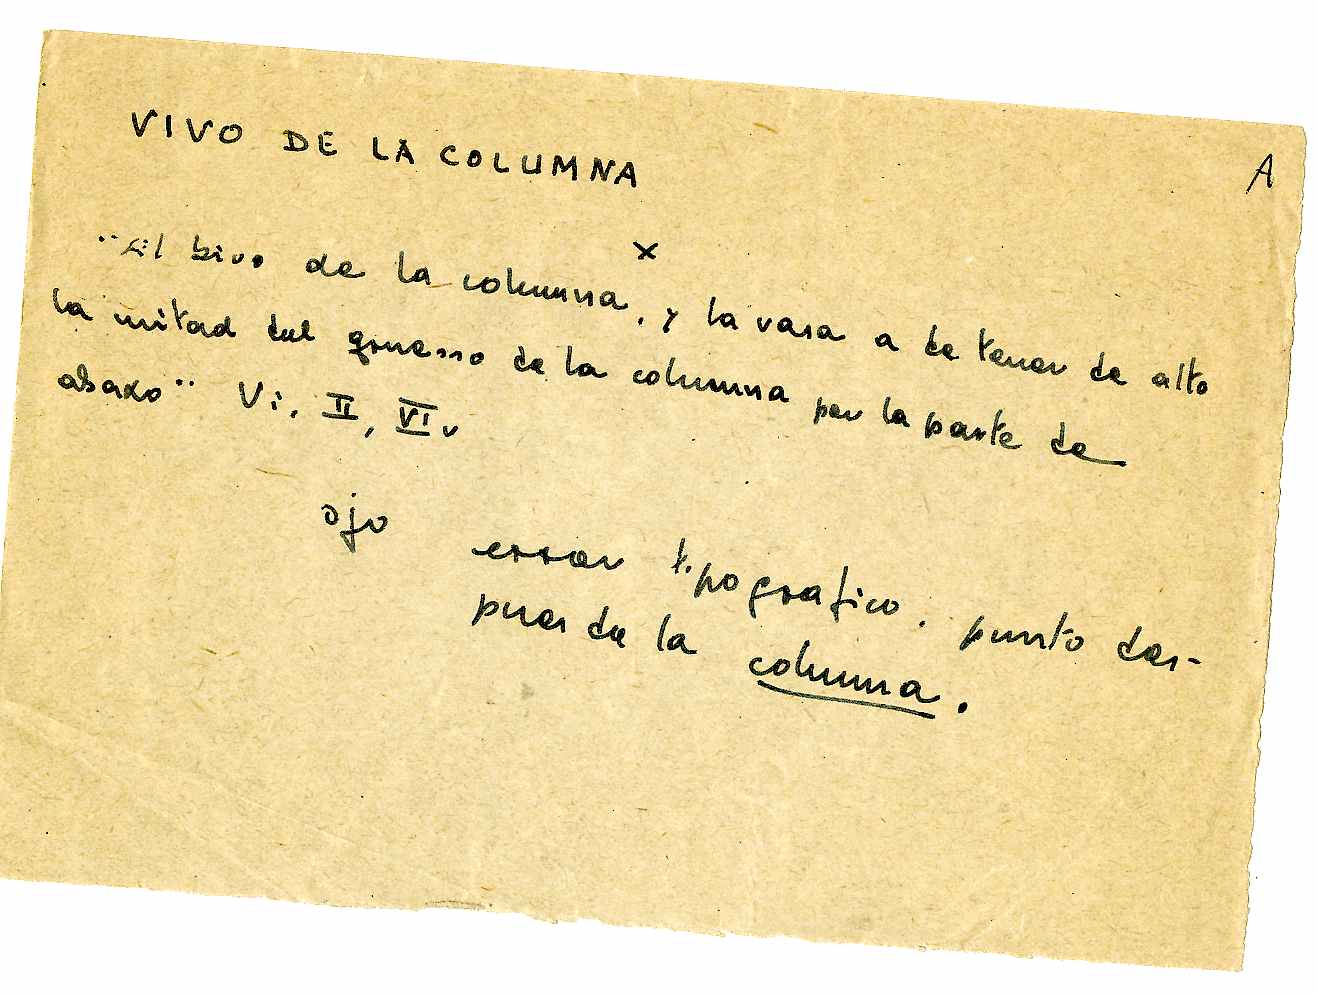 VIVO DE LA COLUMNA
A
x
"El bivo de la columna. y la vasa a de tener de alto
la mitad del gruesso de la columna por la parte de
abaxo" Vi. II, VI v
ojo error tipografico. punto des-
pues de la columna.